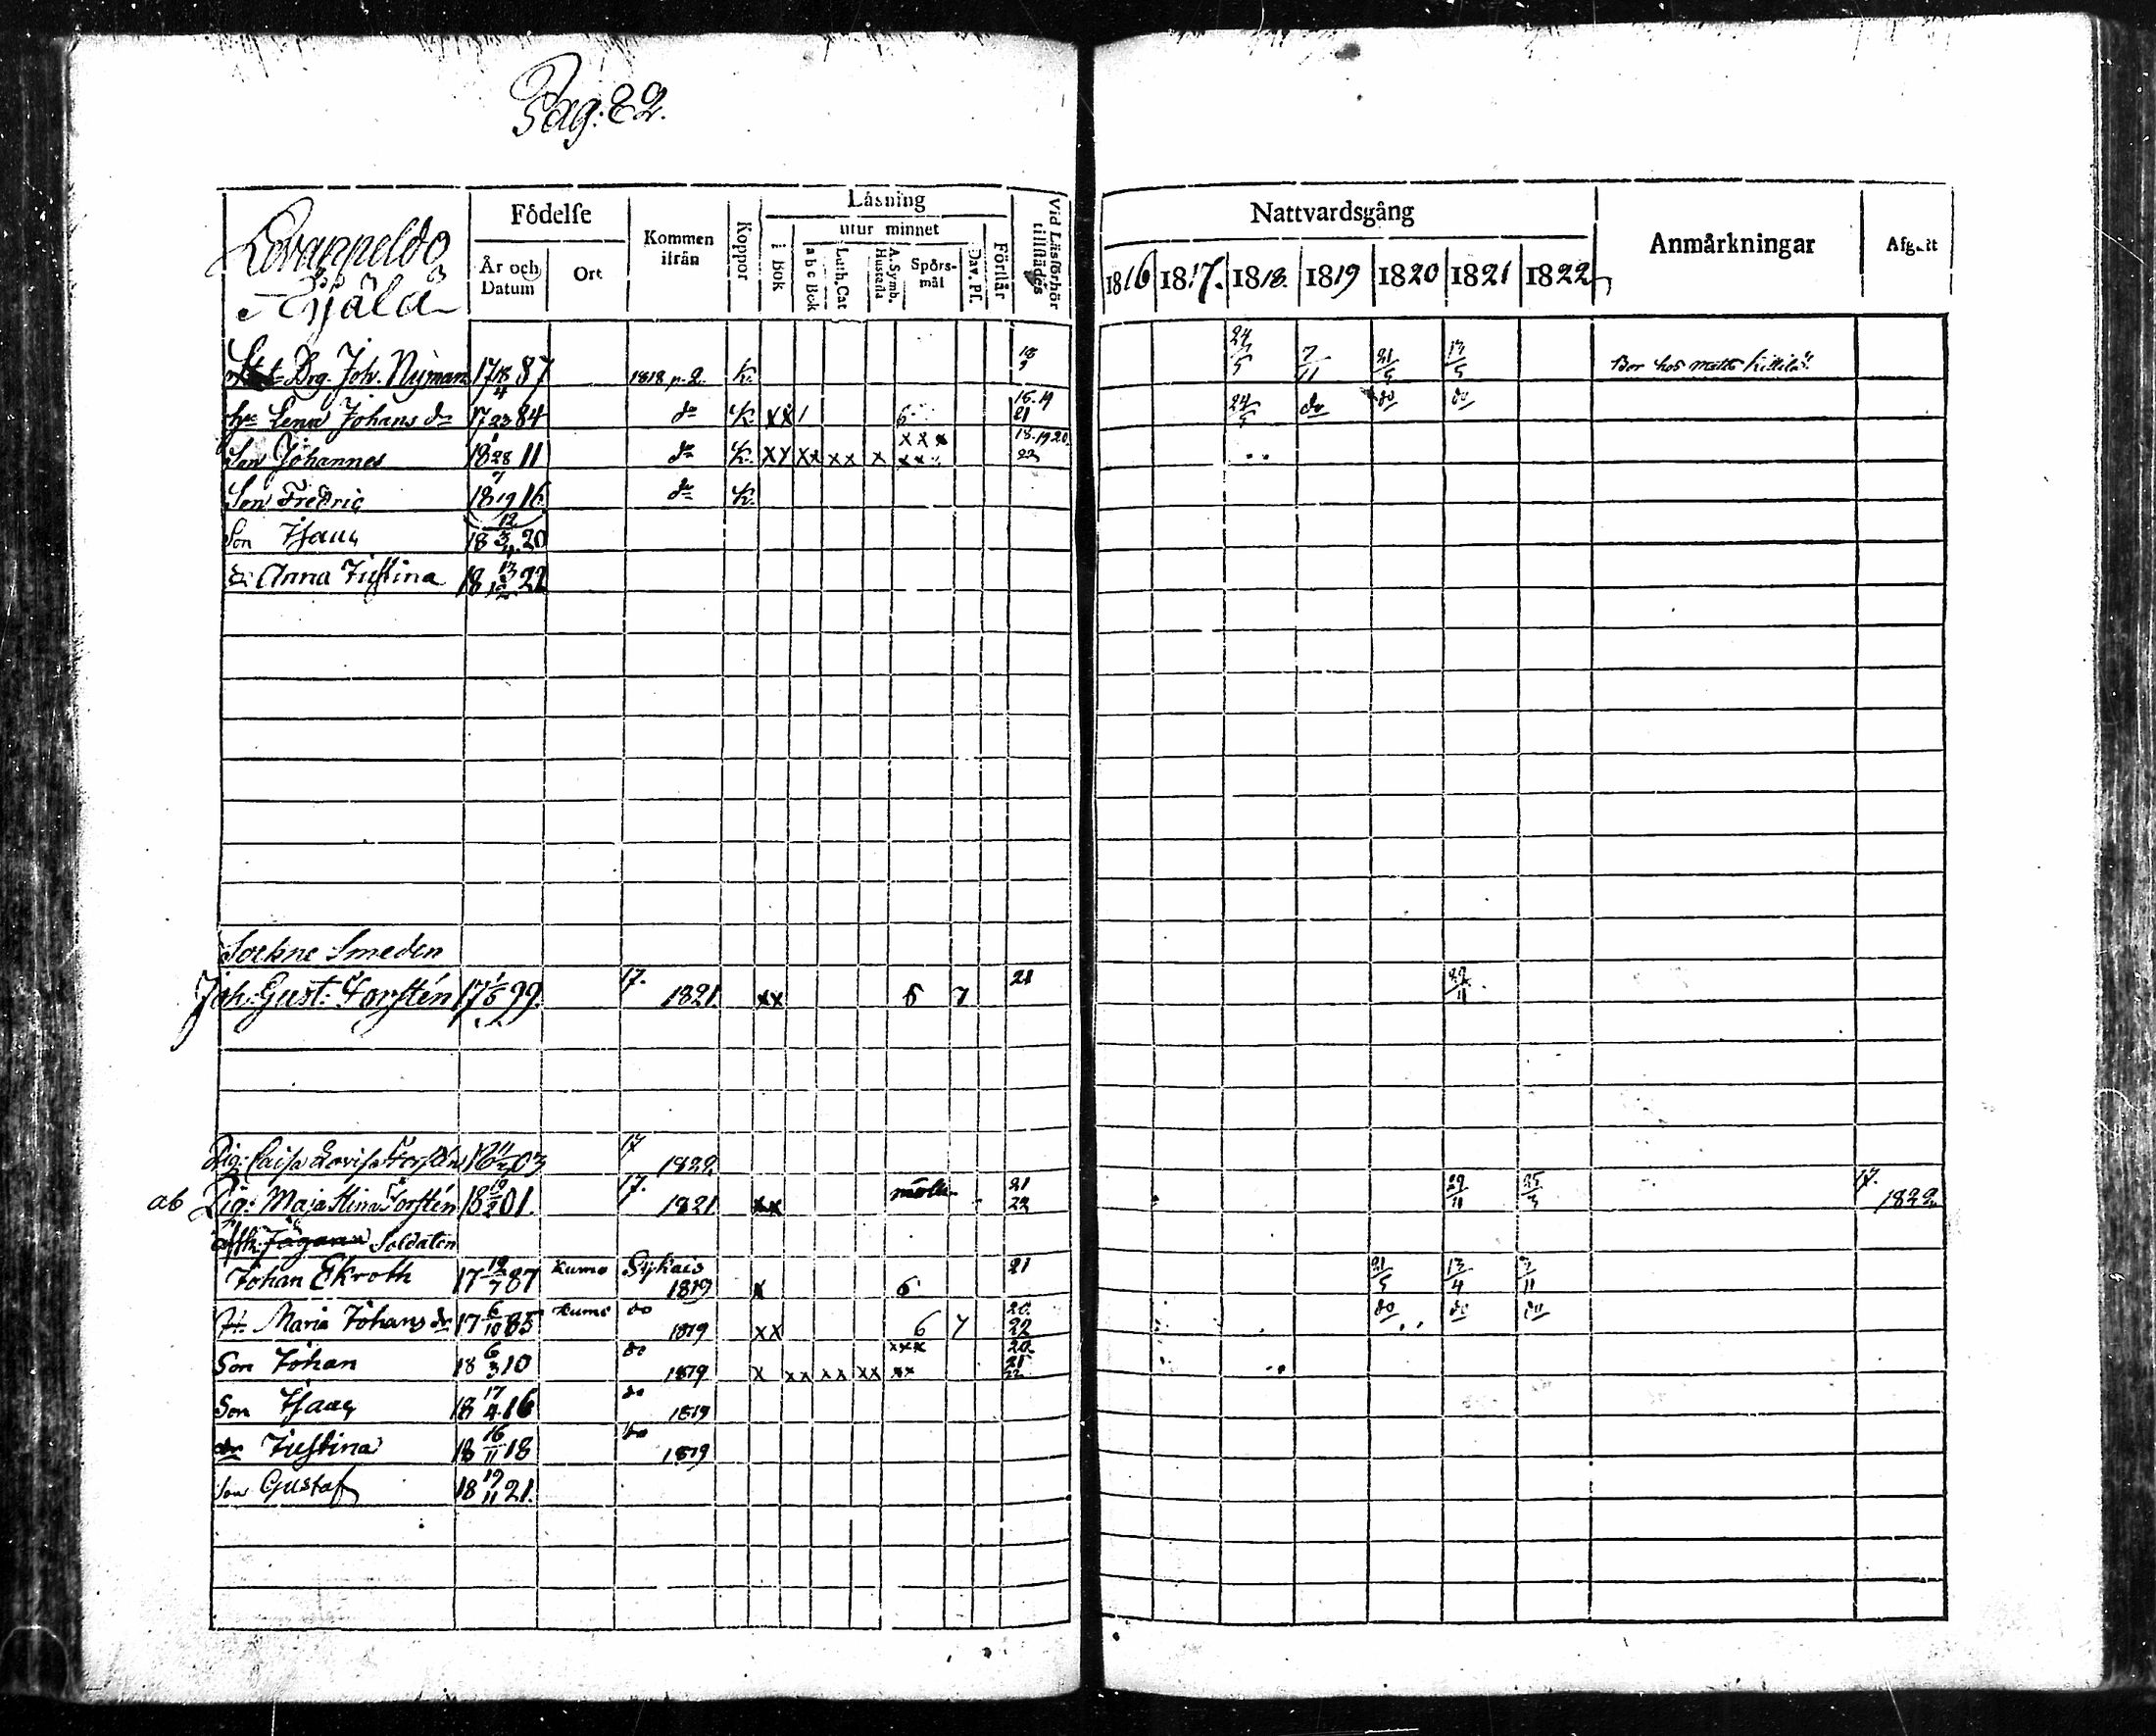 Pag: 82.
Fôdelse Kommen ifrån Koppor Läsning Vid Läsförhör tillstädes
År och Datum Ort i Bok utur minnet Förstår
a b c Bok Luth. Cat A. Symb. Hustafla Spörsmål Dav. Ps.
Nattvardsgång Anmårkningar Afgått
1816 1817. 1818. 1819 1820 1821 1822
Drg. Joh. Nyman 17 18/4 87 1818 p. 2. K. 18 24/5 7/11 21/5 13/5 Bor hos Matts
hu Lena Johans dr 17 23 84 do K. XX / 6 18.19 21 24/5 do do do
Son Johannes 18 28 11 do K. XX XX xx x xxx xx 18.19 20. 22
Son Fredric 18 19/12 16 do K.
Son Isaac 18 3/4 20
dr Anna Justina 18 13/12 22
Sockne Smeden
Joh: Gust: Forstén 17 1/5 99 17. 1821. xx 6 7 21 29/11
Pig: Caisa Lovisa Forstén 18 03 17 1822
ab Pig: Maja Stina Forstén 18 19/2 01. 17. 1821 xx 21 22 29/11 25/3 17. 1822
Afsk: Jägaren Soldaten
Johan Ekroth 17 12/7 87 Kumo 1819 x 6 21 21/5 13/4 3/11
H. Maria Johans dr 17 6/10 85 Kumo do 1819 xx 6 7 20. 22 do do do
Son Johan 18 6/3 10 do 1819 x xx xx xx xxx xx 20 21 22
Son Isaac 18 17/4 16 do 1819
dr Justina 18 16/11 18 do 1819
Son Gustaf 18 19/11 21.